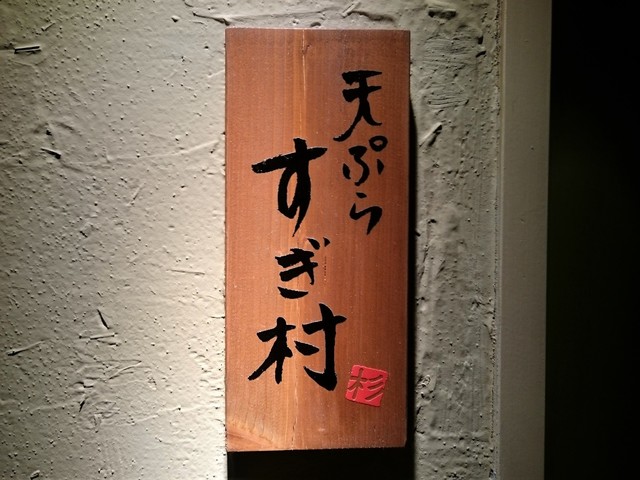 天ぷら
すぎ村
杉